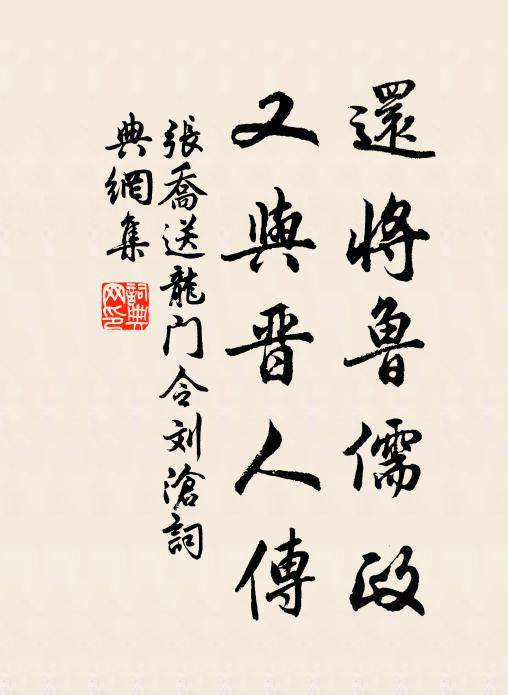 還將魯儒政
又與晋人傳
張喬送龍门令刘滄詞
典網集
詞典网印